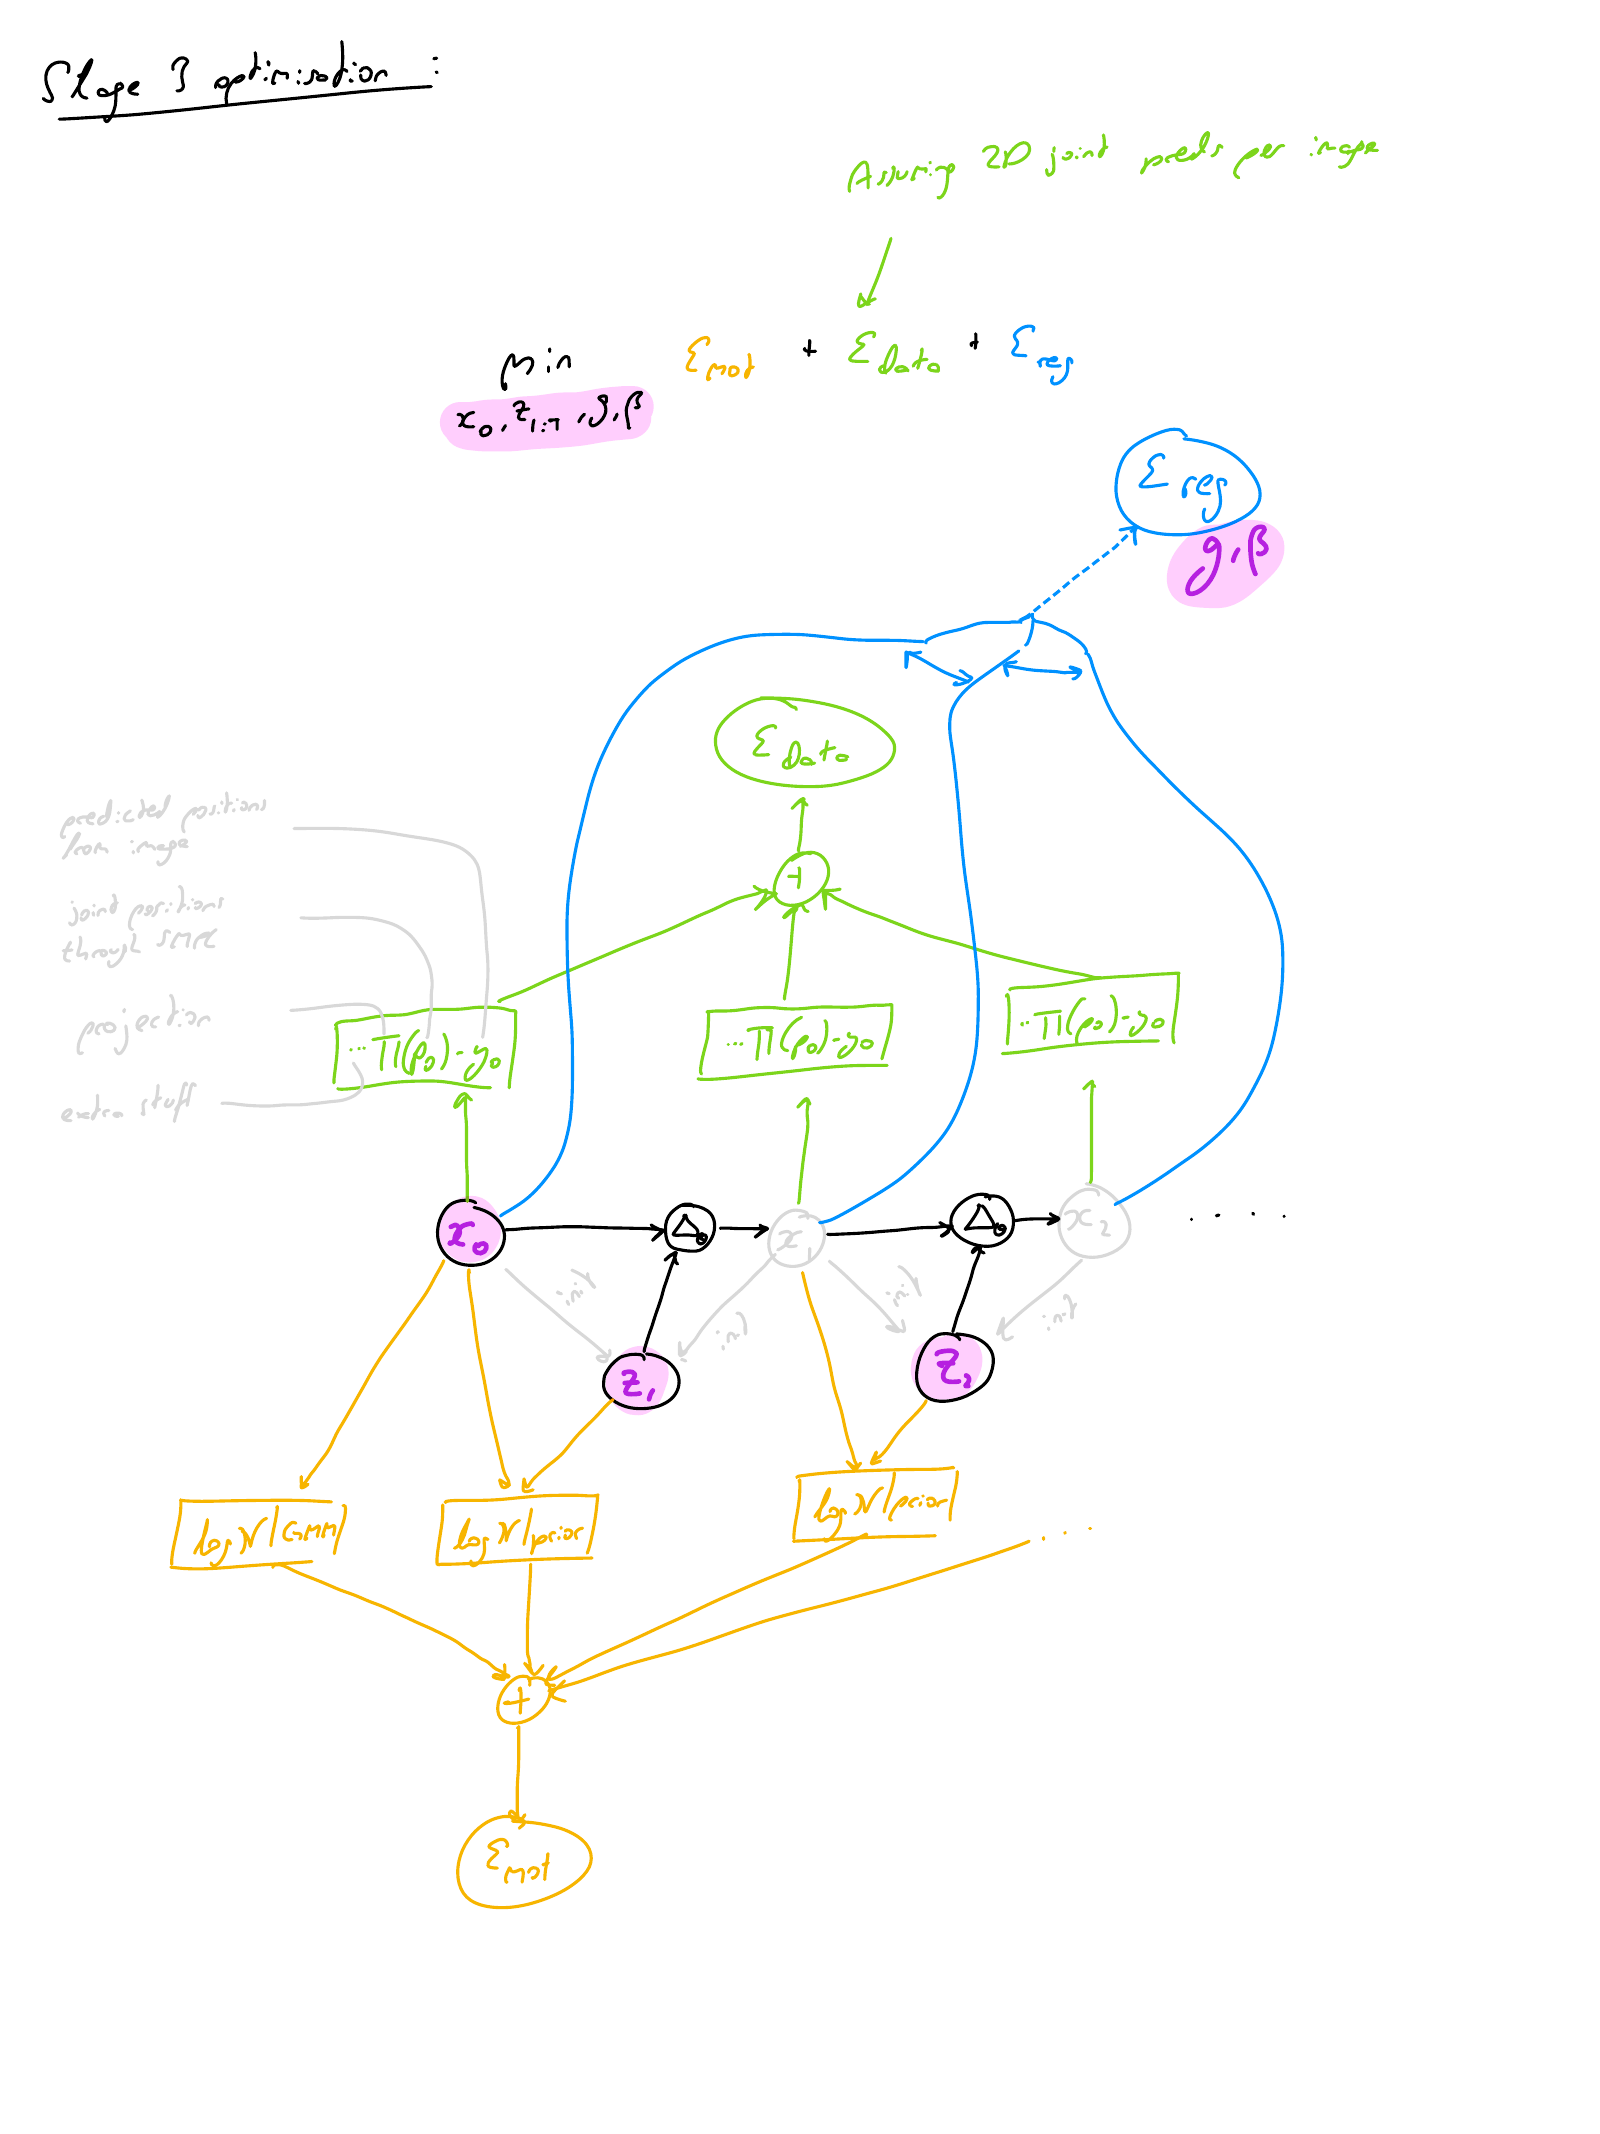 Stage 3 optimisation :
Assuming 2D joint preds per image
min ε_mot + ε_Data + ε_reg
x_0, z_1:T, g, β
ε_reg
g, β
ε_Data
predicted positions
from image
joint positions
through SMPL
projection
extra stuff
+
... Π(p_0) - y_0
... Π(p_0) - y_0
... Π(p_0) - y_0
x_0
Δ_θ
x_1
Δ_θ
x_2
. . . .
init
init
init
init
z_1
z_2
log N / GMM
log N / prior
log N / prior
. . .
+
ε_mot